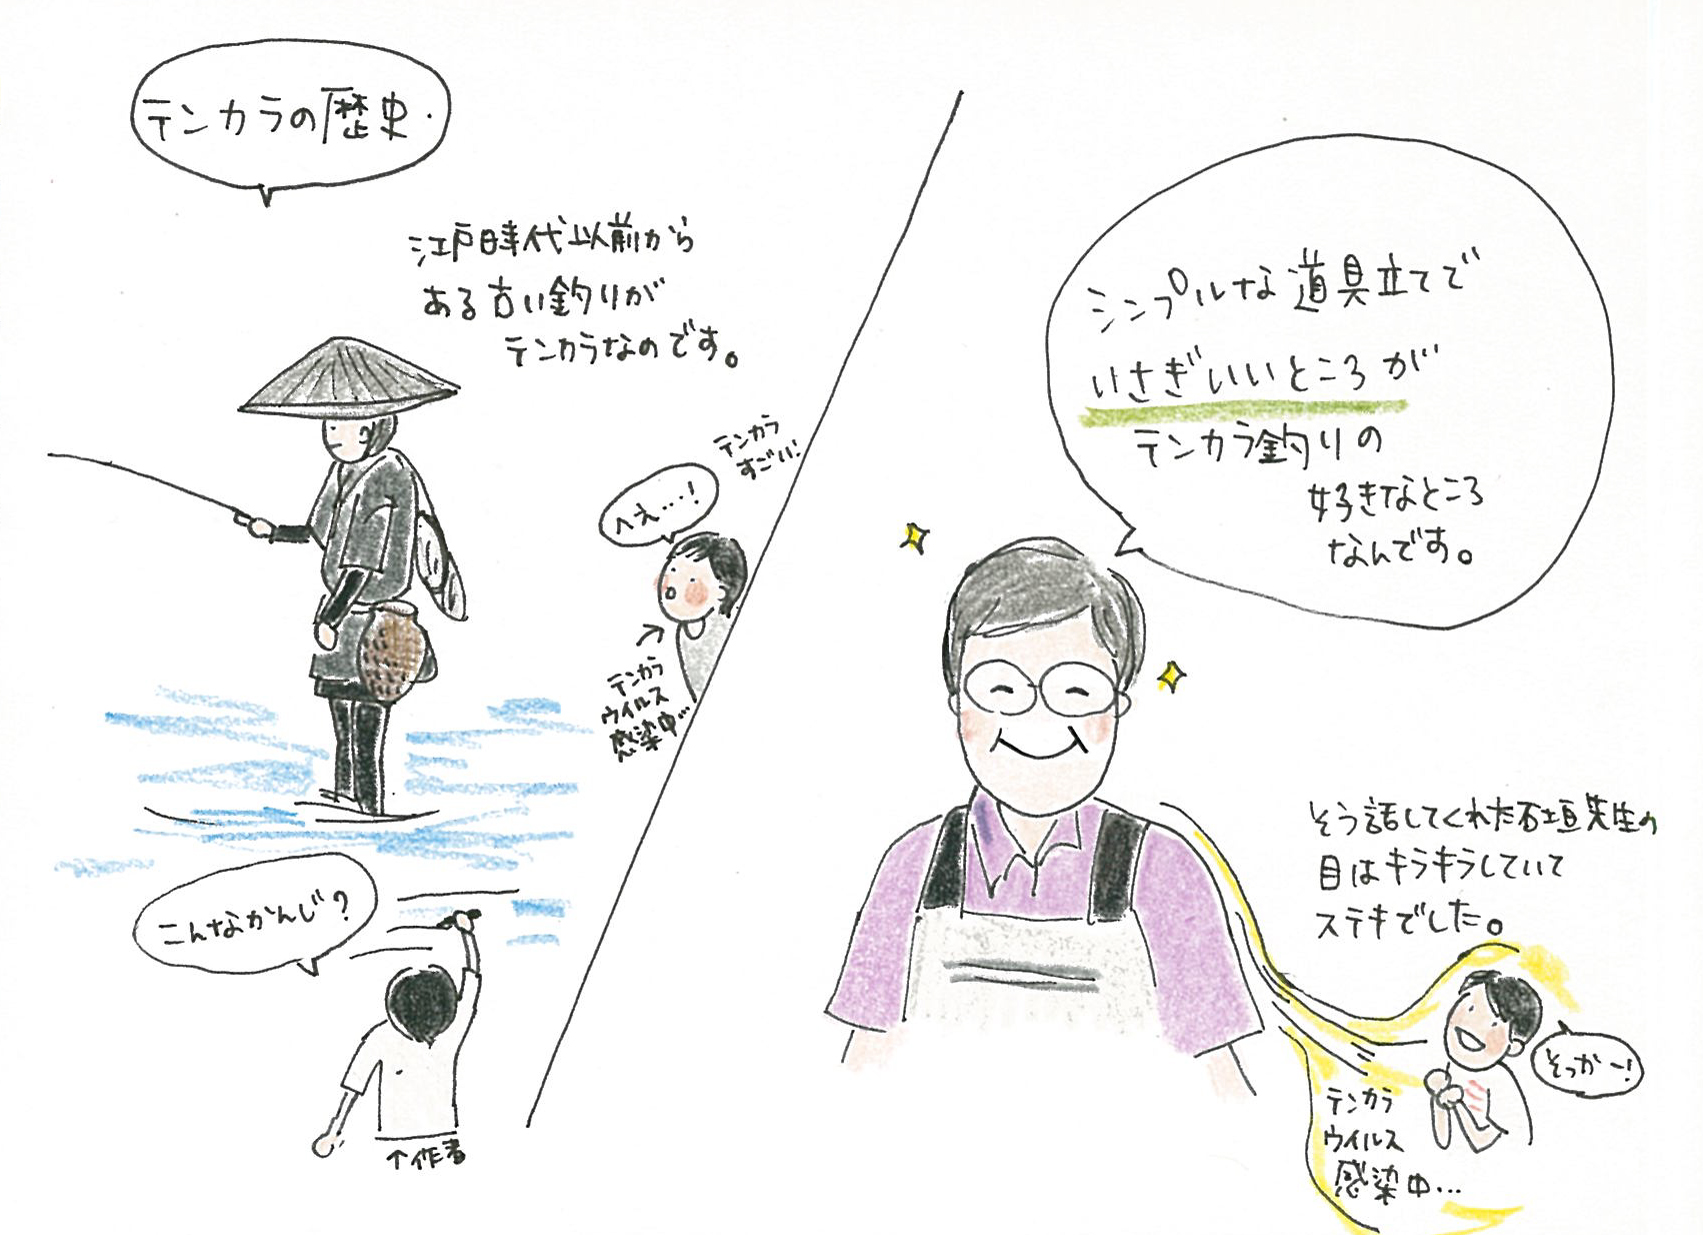 テンカラの歴史.
江戸時代以前から
ある古い釣りが
テンカラなのです。
テンカラ
すごい!
へえ…!
テンカラ
ウイルス
感染中…
こんなかんじ?
↑作者
シンプルな道具立てで
いさぎいいところが
テンカラ釣りの
好きなところ
なんです。
そう話してくれた石垣先生の
目はキラキラしていて
ステキでした。
そっかー!
テンカラ
ウイルス
感染中…